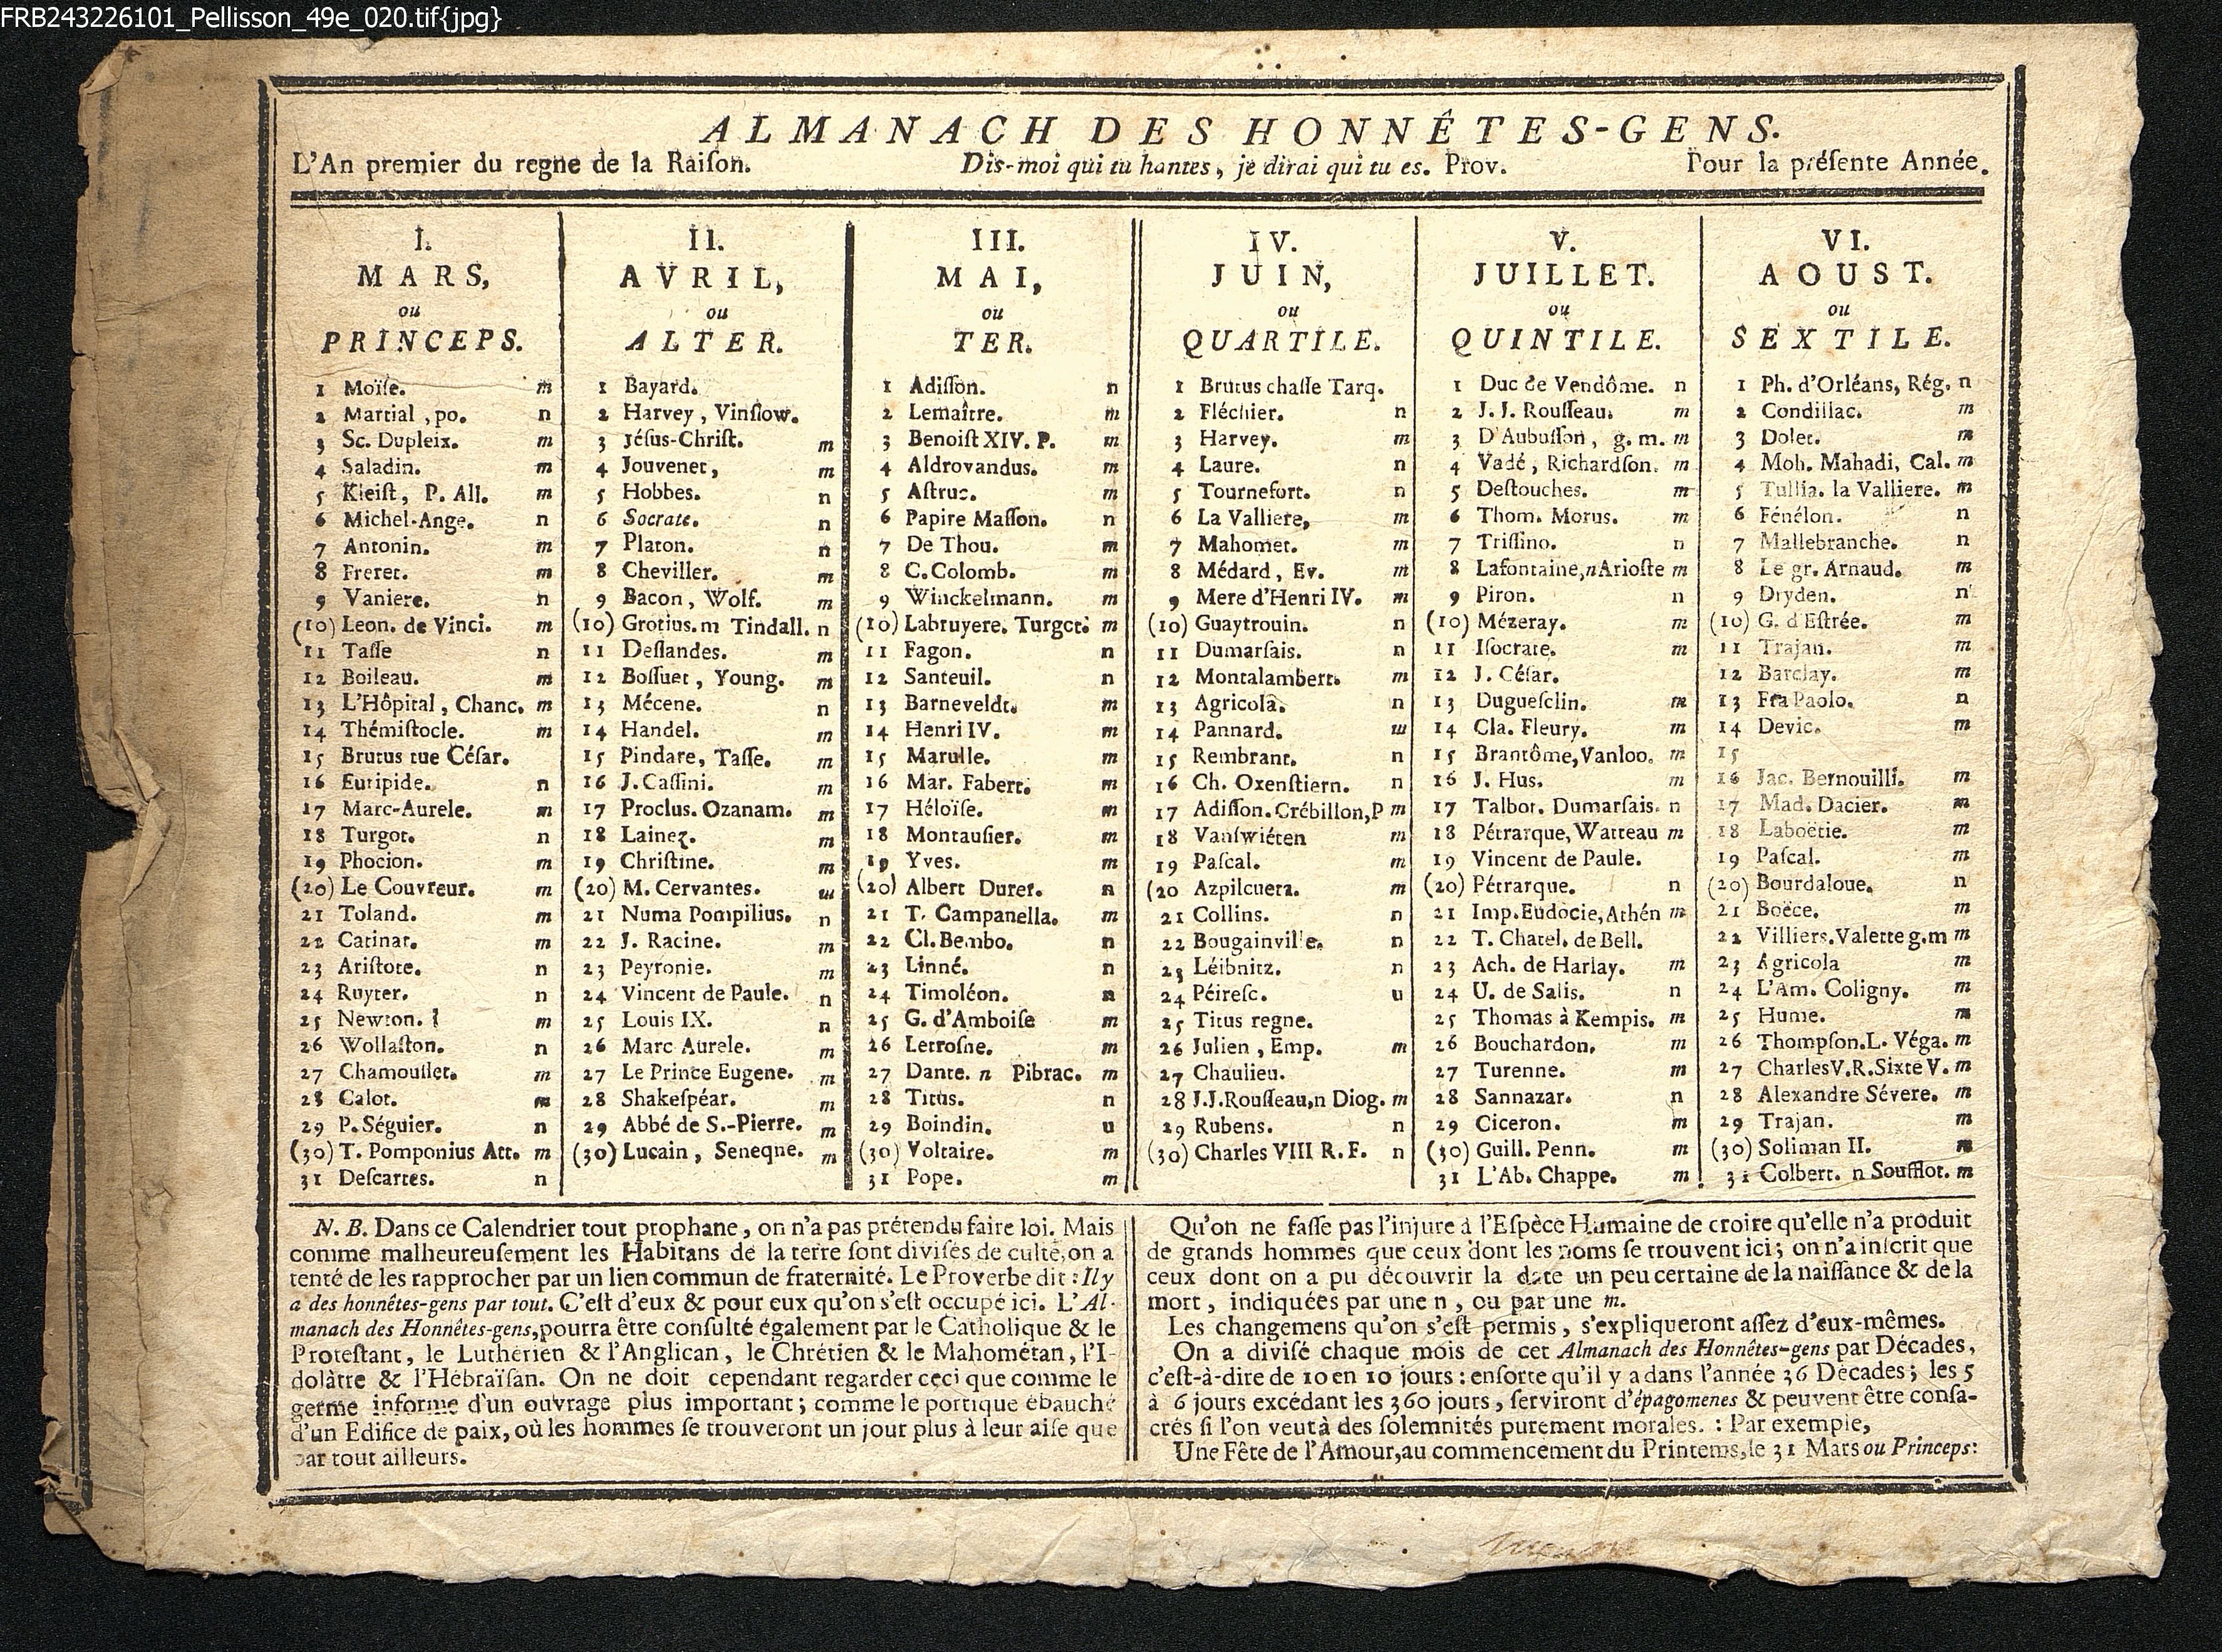 FRB243226101_Pellisson_49e_020.tif{jpg}
ALMANACH DES HONNÊTES-GENS.
L'An premier du regne de la Raiſon. Dis-moi qui tu hantes, je dirai qui tu es. Prov. Pour la préſente Année.
I.
MARS,
ou
PRINCEPS.
1 Moïſe. m
2 Martial, po. n
3 Sc. Dupleix. m
4 Saladin. m
5 Kleiſt, P. All. m
6 Michel-Ange. n
7 Antonin. m
8 Freret. m
9 Vaniere. n
(10) Leon. de Vinci. m
11 Taſſe n
12 Boileau. m
13 L'Hôpital, Chanc. m
14 Thémiſtocle. m
15 Brutus tue Céſar.
16 Euripide. n
17 Marc-Aurele. m
18 Turgot. n
19 Phocion. m
(20) Le Couvreur. m
21 Toland. m
22 Catinat. m
23 Ariſtote. n
24 Ruyter. n
25 Newton. m
26 Wollaſton. n
27 Chamouſſet. m
28 Calot. m
29 P. Séguier. n
(30) T. Pomponius Att. m
31 Deſcartes. n
II.
AVRIL,
ou
ALTER.
1 Bayard.
2 Harvey, Vinſlow.
3 Jéſus-Chriſt. m
4 Jouvenet, m
5 Hobbes. n
6 Socrate. n
7 Platon. n
8 Cheviller. m
9 Bacon, Wolf. m
(10) Grotius. m Tindall. n
11 Deſlandes. m
12 Boſſuet, Young. m
13 Mécene. n
14 Handel. m
15 Pindare, Taſſe. m
16 J. Caſſini. m
17 Proclus. Ozanam. m
18 Lainez. m
19 Chriſtine. m
(20) M. Cervantes. m
21 Numa Pompilius. n
22 J. Racine. m
23 Peyronie. m
24 Vincent de Paule. n
25 Louis IX. n
26 Marc Aurele. m
27 Le Prince Eugene. m
28 Shakeſpéar. m
29 Abbé de S.-Pierre. m
(30) Lucain, Seneqne. m
III.
MAI,
ou
TER.
1 Adiſſon. n
2 Lemaître. m
3 Benoiſt XIV. P. m
4 Aldrovandus. m
5 Aſtruc. m
6 Papire Maſſon. n
7 De Thou. m
8 C. Colomb. m
9 Winckelmann. m
(10) Labruyere. Turgot. m
11 Fagon. n
12 Santeuil. n
13 Barneveldt. m
14 Henri IV. m
15 Marulle. m
16 Mar. Fabert. m
17 Héloïſe. m
18 Montauſier. m
19 Yves. m
(20) Albert Durer. n
21 T. Campanella. m
22 Cl. Bembo. n
23 Linné. n
24 Timoléon. n
25 G. d'Amboiſe m
26 Letroſne. m
27 Dante. n Pibrac. m
28 Titus. n
29 Boindin. n
(30) Voltaire. m
31 Pope. m
IV.
JUIN,
ou
QUARTILE.
1 Brutus chaſſe Tarq.
2 Fléchier. n
3 Harvey. m
4 Laure. n
5 Tournefort. n
6 La Valliere, m
7 Mahomet. m
8 Médard, Ev. m
9 Mere d'Henri IV. m
(10) Guaytrouin. n
11 Dumarſais. n
12 Montalambert. m
13 Agricola. n
14 Pannard. m
15 Rembrant. n
16 Ch. Oxenſtiern. n
17 Adiſſon. Crébillon, P m
18 Vanſwiéten m
19 Paſcal. m
(20 Azpilcueta. m
21 Collins. n
22 Bougainville. n
23 Léibnitz. n
24 Péireſc. u
25 Titus regne.
26 Julien, Emp. m
27 Chaulieu.
28 J.J. Rouſſeau, n Diog. m
29 Rubens. n
(30) Charles VIII R. F. n
V.
JUILLET.
ou
QUINTILE.
1 Duc de Vendôme. n
2 J. J. Rouſſeau. m
3 D'Aubuſſon, g. m. m
4 Vadé, Richardſon. m
5 Deſtouches. m
6 Thom. Morus. m
7 Triſſino. n
8 Lafontaine, n Arioſte m
9 Piron. n
(10) Mézeray. m
11 Iſocrate. m
12 J. Céſar.
13 Dugueſclin. m
14 Cla. Fleury. m
15 Brantôme, Vanloo. m
16 J. Hus. m
17 Talbot. Dumarſais. n
18 Pétrarque, Watteau m
19 Vincent de Paule.
(20) Pétrarque. n
21 Imp. Eudocie, Athén m
22 T. Chatel. de Bell.
23 Ach. de Harlay. m
24 U. de Salis. n
25 Thomas à Kempis. m
26 Bouchardon. m
27 Turenne. m
28 Sannazar. n
29 Ciceron. m
(30) Guill. Penn. m
31 L'Ab. Chappe. m
VI.
AOUST.
ou
SEXTILE.
1 Ph. d'Orléans, Rég. n
2 Condillac. m
3 Dolet. m
4 Moh. Mahadi, Cal. m
5 Tullia. la Valliere. m
6 Fénélon. n
7 Mallebranche. n
8 Le gr. Arnaud. m
9 Dryden. n
(10) G. d'Eſtrée. m
11 Trajan. m
12 Barclay. m
13 Fra Paolo. n
14 Devic. m
15
16 Jac. Bernouilli. m
17 Mad. Dacier. m
18 Laboëtie. m
19 Paſcal. m
(20) Bourdaloue. n
21 Boëce. m
22 Villiers. Valette g.m m
23 Agricola m
24 L'Am. Coligny. m
25 Hume. m
26 Thompſon. L. Véga. m
27 Charles V. R. Sixte V. m
28 Alexandre Sévere. m
29 Trajan. m
(30) Soliman II. m
31 Colbert. n Soufflot. m
N. B. Dans ce Calendrier tout prophane, on n'a pas prétendu faire loi. Mais
comme malheureuſement les Habitans de la terre ſont diviſés de culte, on a
tenté de les rapprocher par un lien commun de fraternité. Le Proverbe dit : Il y
a des honnêtes-gens par tout. C'eſt d'eux & pour eux qu'on s'eſt occupé ici. L'Al-
manach des Honnêtes-gens, pourra être conſulté également par le Catholique & le
Proteſtant, le Luthérien & l'Anglican, le Chrétien & le Mahométan, l'I-
dolâtre & l'Hébraïſan. On ne doit cependant regarder ceci que comme le
germe informe d'un ouvrage plus important; comme le portique ébauché
d'un Edifice de paix, où les hommes ſe trouveront un jour plus à leur aiſe que
par tout ailleurs.
Qu'on ne faſſe pas l'injure à l'Eſpèce Humaine de croire qu'elle n'a produit
de grands hommes que ceux dont les noms ſe trouvent ici; on n'a inſcrit que
ceux dont on a pu découvrir la date un peu certaine de la naiſſance & de la
mort, indiquées par une n, ou par une m.
Les changemens qu'on s'eſt permis, s'expliqueront aſſez d'eux-mêmes.
On a diviſé chaque mois de cet Almanach des Honnêtes-gens par Décades,
c'eſt-à-dire de 10 en 10 jours : enſorte qu'il y a dans l'année 36 Décades; les 5
à 6 jours excédant les 360 jours, ſerviront d'épagomenes & peuvent être conſa-
crés ſi l'on veut à des ſolemnités purement morales. : Par exemple,
Une Fête de l'Amour, au commencement du Printems, le 31 Mars ou Princeps: